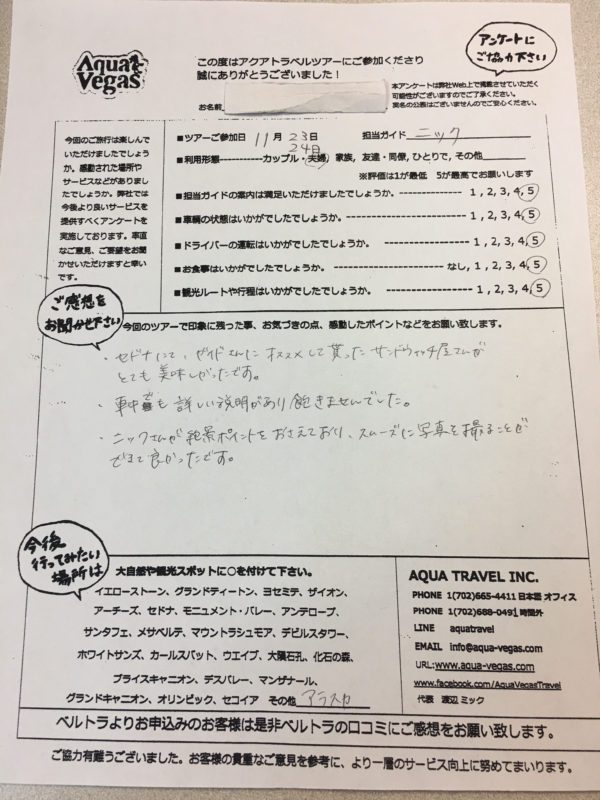 Aqua
Vegas
この度はアクアトラベルツアーにご参加くださり
誠にありがとうございました！
アンケートに
ご協力下さい
本アンケートは弊社Web上で掲載させていただく
可能性がございますのでご了承ください。
実名の公表はございませんのでご安心ください。
お名前
今回のご旅行は楽しんで
いただけましたでしょう
か。感動された場所や
サービスなどがありまし
たでしょうか。弊社では
今後より良いサービスを
提供すべくアンケートを
実施しております。率直
なご意見、ご要望をお聞
かせいただけますと幸い
です。
■ツアーご参加日 11月 23日 担当ガイド ニック
24日
■利用形態-----------カップル・夫婦、家族，友達・同僚，ひとりで，その他
※評価は1が最低　5が最高でお願いします
■担当ガイドの案内は満足いただけましたでしょうか。 ---------------- 1 , 2, 3, 4, 5
■車輌の状態はいかがでしたでしょうか。 ---------------------- 1 , 2, 3, 4, 5
■ドライバーの運転はいかがでしたでしょうか。 ------------------- 1 , 2, 3, 4, 5
■お食事はいかがでしたでしょうか。 ---------------------- なし, 1 , 2, 3, 4, 5
■観光ルートや行程はいかがでしたでしょうか。 ------------------ 1 , 2, 3, 4, 5
ご感想を
お聞かせ下さい
今回のツアーで印象に残った事、お気づきの点、感動したポイントなどをお願い致します。
・セドナにて、ガイドさんにオススメして貰ったサンドウィッチ屋さんが
とても美味しかったです。
・車中でも詳しい説明があり飽きませんでした。
・ニックさんが絶景ポイントをおさえており、スムーズに写真を撮ることが
できて良かったです。
今後
行ってみたい
場所は
大自然や観光スポットに○を付けて下さい。
イエローストーン、グランドティートン、ヨセミテ、ザイオン、
アーチーズ、セドナ、モニュメント・バレー、アンテロープ、
サンタフェ、メサベルテ、マウントラシュモア、デビルスタワー、
ホワイトサンズ、カールスバット、ウエイブ、大隕石孔、化石の森、
ブライスキャニオン、デスバレー、マンザナール、
グランドキャニオン、オリンピック、セコイア　その他 アラスカ
AQUA TRAVEL INC.
PHONE 1(702)665-4411 日本語 オフィス
PHONE 1(702)688-0491 時間外
LINE aquatravel
EMAIL info@aqua-vegas.com
URL:www.aqua-vegas.com
www.facebook.com/AquaVegasTravel
代表 渡辺 ミック
ベルトラよりお申込みのお客様は是非ベルトラの口コミにご感想をお願い致します。
ご協力有難うございました。お客様の貴重なご意見を参考に、より一層のサービス向上に努めてまいります。